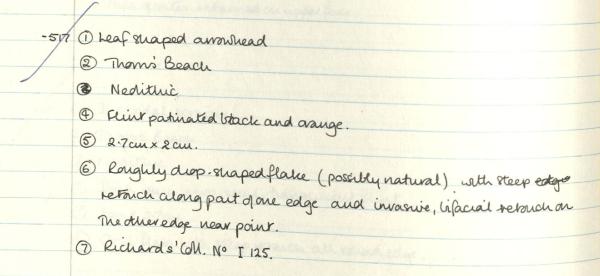 -517 ① Leaf shaped arrowhead
② Thorn's Beach
③ Neolithic
④ Flint patinated black and orange.
⑤ 2.7cm x 2cm.
⑥ Roughly drop-shaped flake (possibly natural) with steep edge
retouch along part of one edge and invasive, bifacial retouch on
the other edge near point.
⑦ Richards' Coll. Nº I 125.